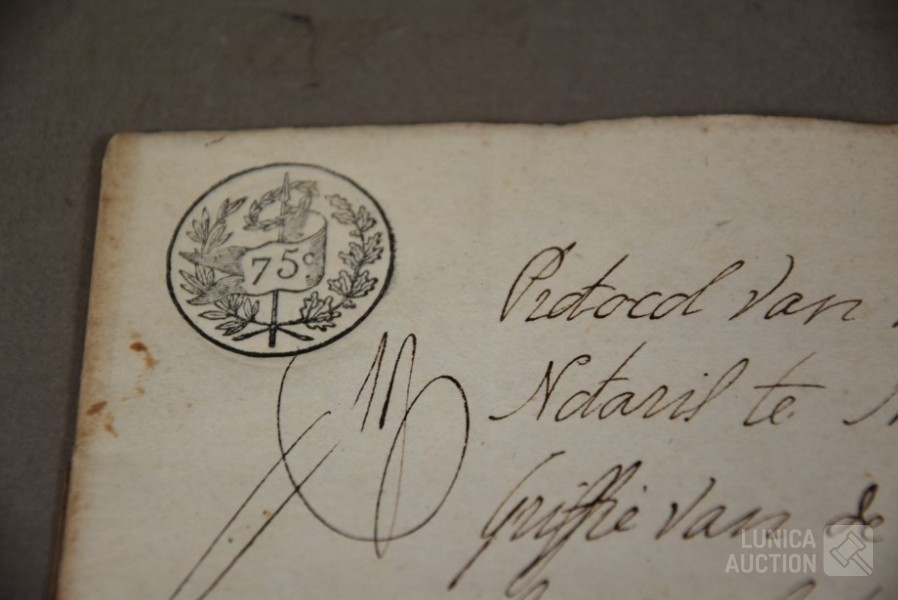 75c
Protocol van
Notaris te
Griffie van de
LUNICA
AUCTION